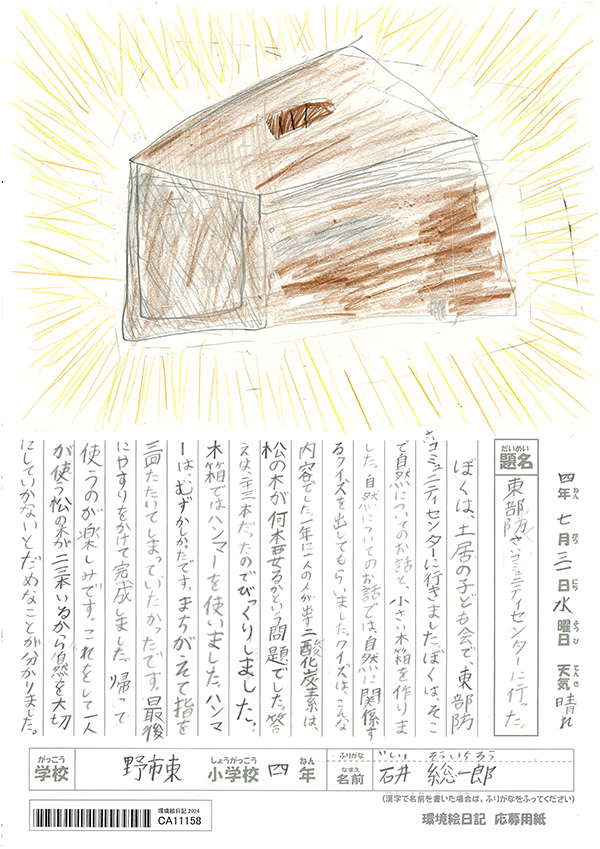 四年 七月 三一日 水曜日 天気 晴れ
ねん がつ にち ようび てんき
だいめい
題名
東部防さいコミュニティセンターに行った。
ぼくは、土居の子ども会で、東部防
さいコミュニティセンターに行きました。ぼくは、そこ
で自然についてのお話と、小さい木箱を作りま
した。自然についてのお話では、自然に関係す
るクイズを出してもらいました。クイズは、こんな
内容でした。一年に一人の人が出す二酸化炭素は、
松の木が何本要るかという問題でした。答
えは、二十三本だったのでびっくりしました。
木箱ではハンマーを使いました。ハンマ
ーは、むずかしかったです。まちがえて指を
三回たたいてしまっていたかったです。最後
にやすりをかけて完成しました。帰って
使うのが楽しみです。これをして一人
が使う松の木が二十三本いるから自然を大切
にしていかないとだめなことが分かりました。
がっこう 学校 野市東 しょうがっこう 小学校 四 ねん 年
ふりがな いしい そういちろう
なまえ 名前 石井 総一郎
(漢字で名前を書いた場合は、ふりがなをふってください)
環境絵日記 2024
CA11158
環境絵日記 応募用紙